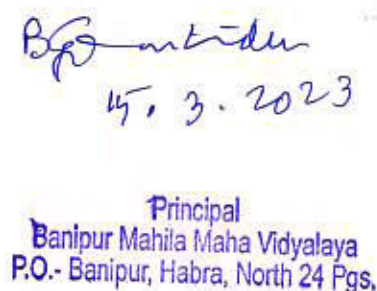 15.3.2023
Principal
Banipur Mahila Maha Vidyalaya
P.O.- Banipur, Habra, North 24 Pgs.